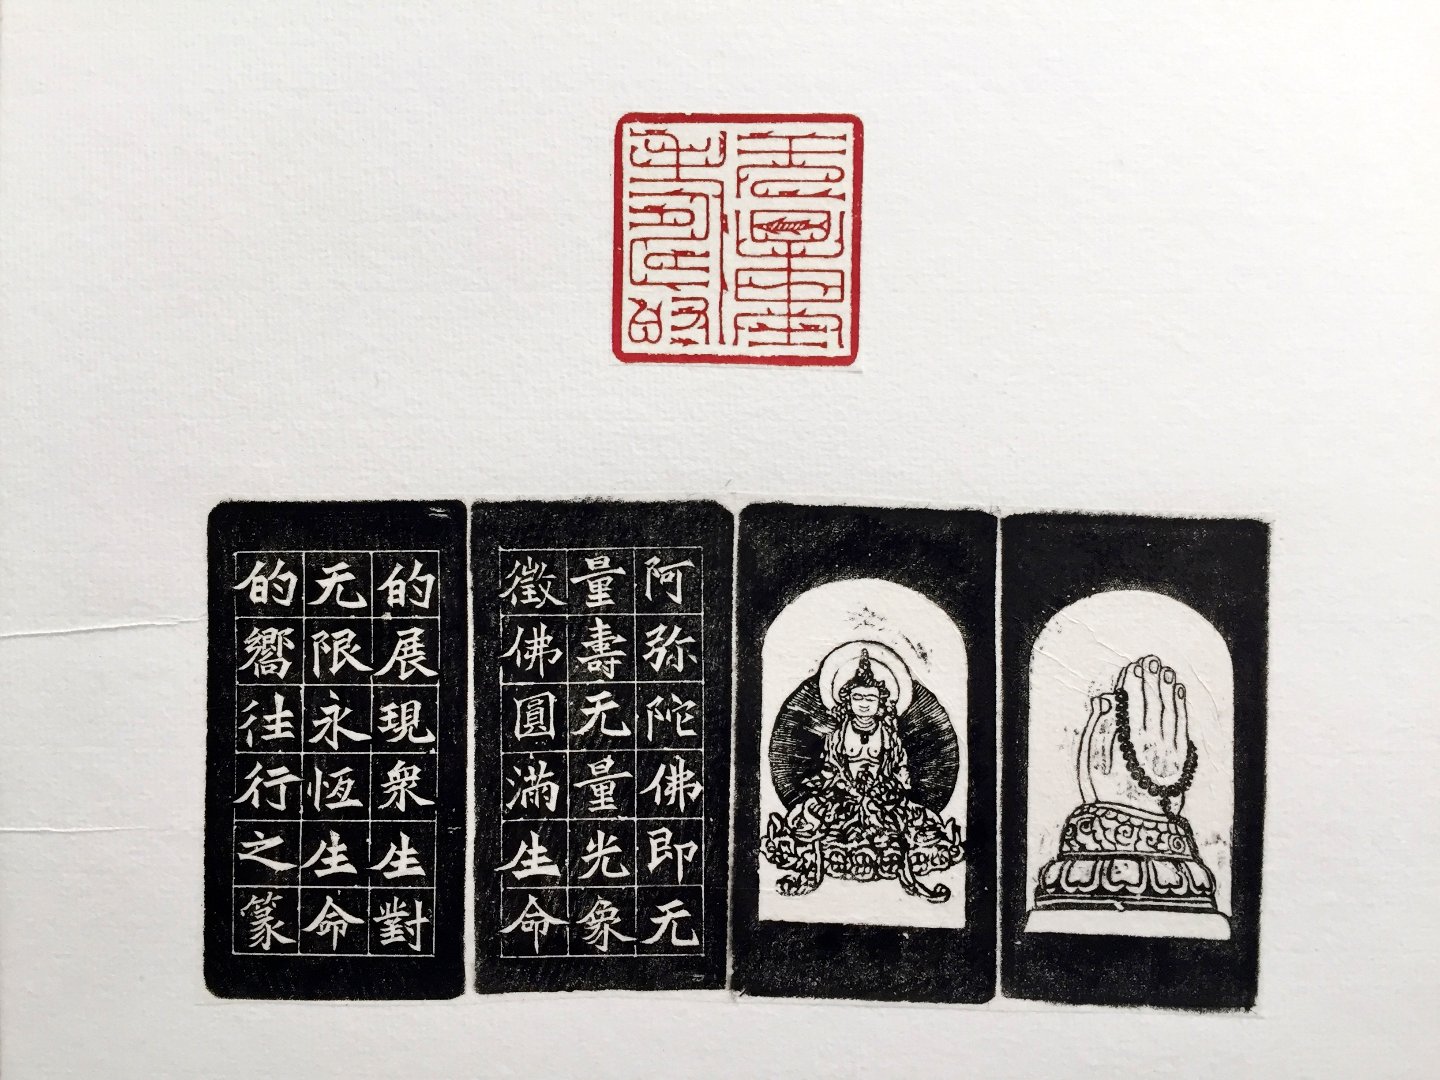 阿弥陀佛即无
量壽无量光象
徵佛圓滿生命
的展現衆生對
无限永恆生命
的嚮往行之篆